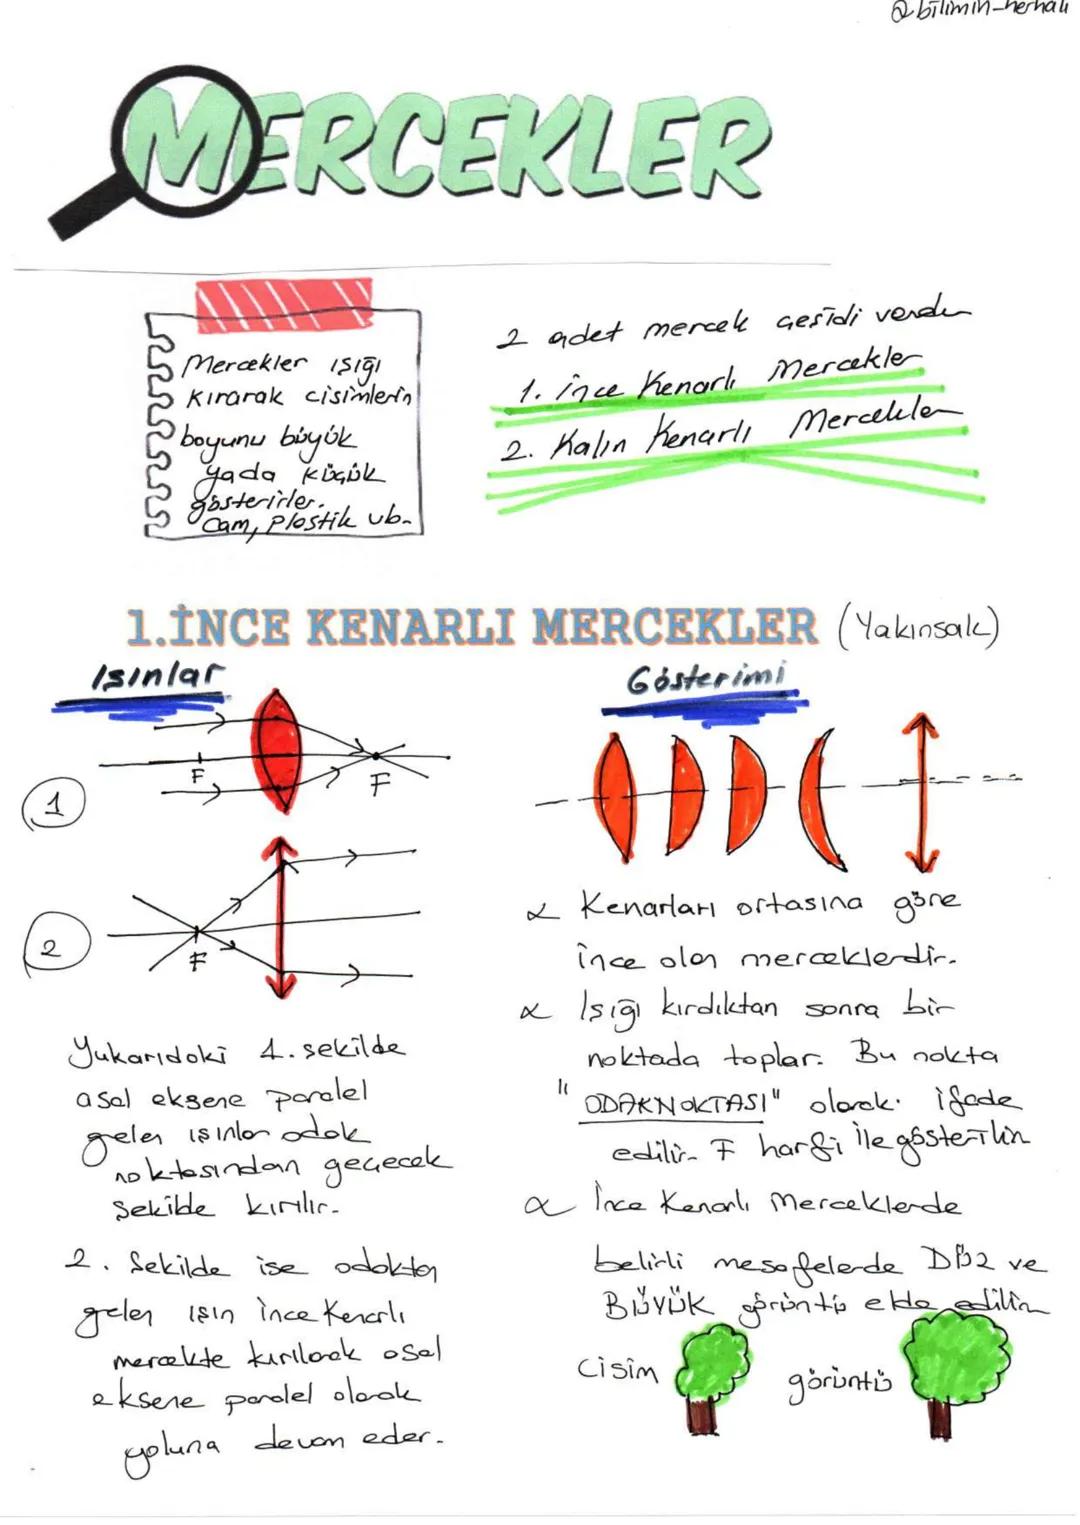 @bilimin_herhali
MERCEKLER
Mercekler ışığı
kırarak cisimlerin
boyunu büyük
yada küçük
gösterirler.
Cam, plastik vb.
2 adet mercek çeşidi vardır
1. ince Kenarlı Mercekler
2. Kalın Kenarlı Mercekler
1.İNCE KENARLI MERCEKLER (Yakınsak)
Işınlar
F
F
1
2
F
Yukarıdaki 1. şekilde
asal eksene paralel
gelen ışınlar odak
noktasından geçecek
şekilde kırılır.
2. Şekilde ise odaktan
gelen ışın ince Kenarlı
mercekte kırılarak asal
eksene paralel olarak
yoluna devam eder.
Gösterimi
Kenarları ortasına göre
ince olan merceklerdir.
Işığı kırdıktan sonra bir
noktada toplar. Bu nokta
"ODAKNOKTASI" olarak ifade
edilir. F harfi ile gösterilir
İnce Kenarlı Merceklerde
belirli mesafelerde DÜZ ve
BÜYÜK görüntü elde edilir
cisim
görüntü